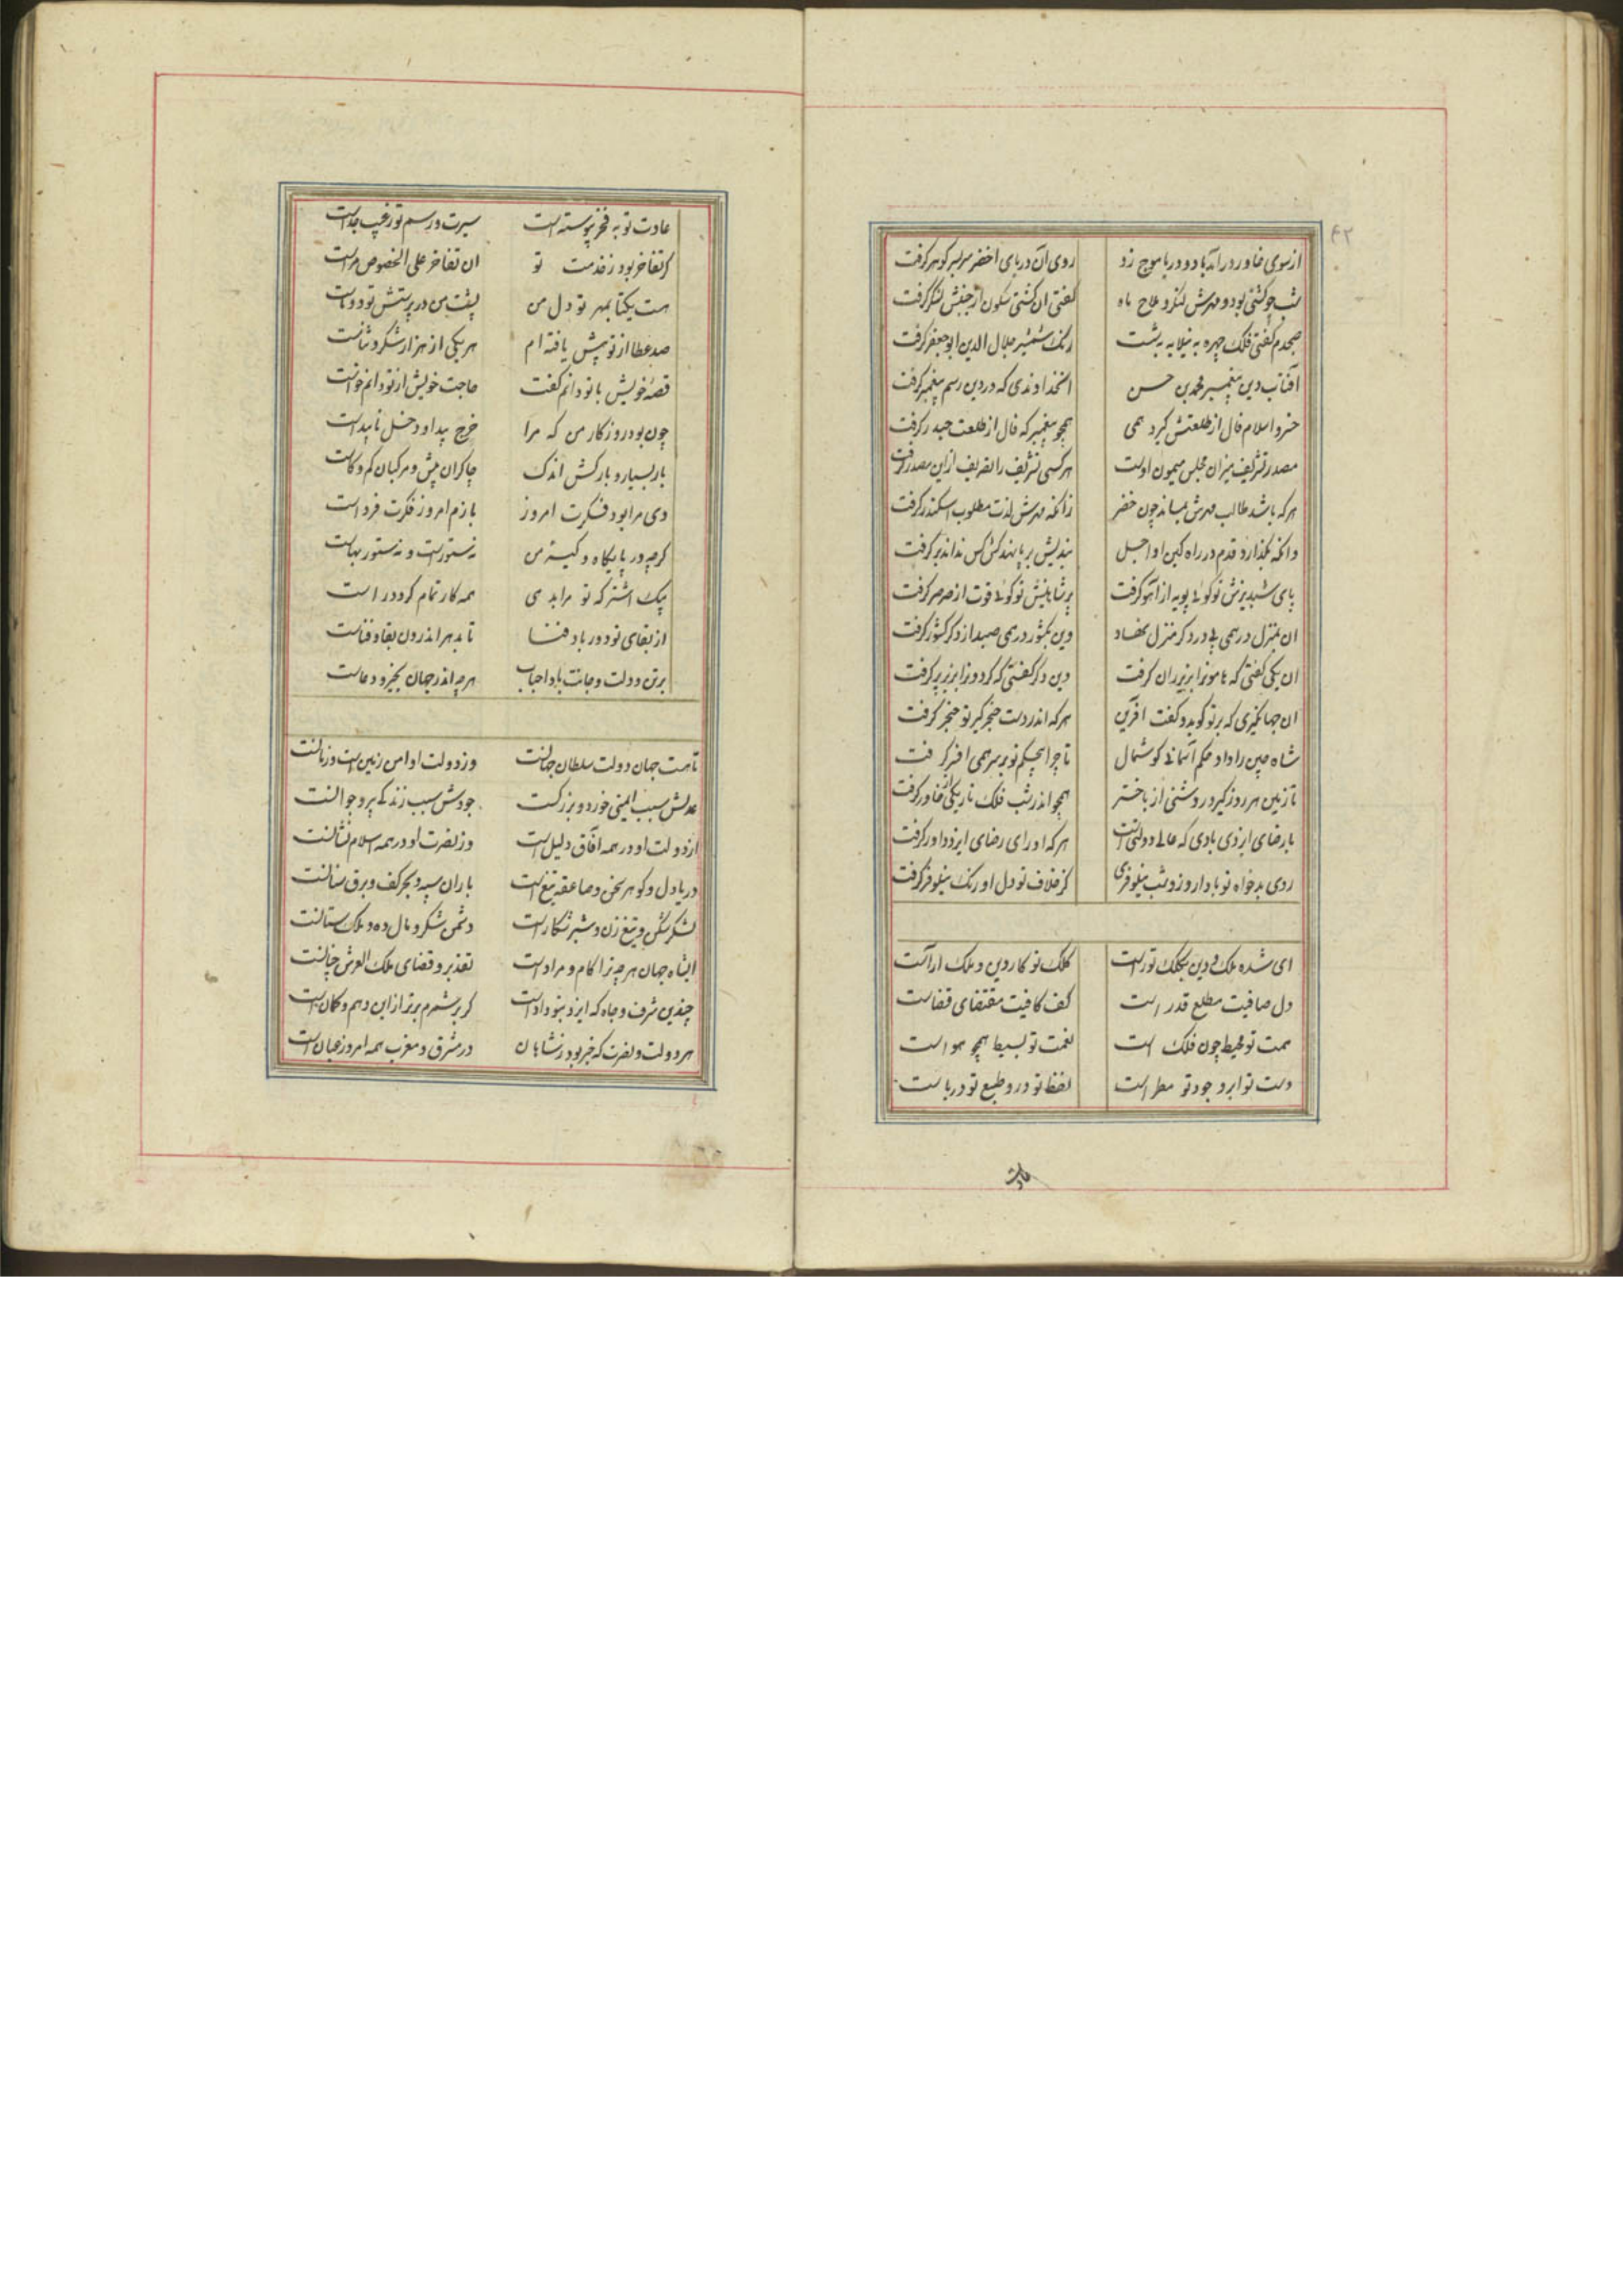 ۴۲
از سوی خاور درآمد باد و دریا موج زد روی آن دریای اخضر سر بسر گوهر گرفت
شب چو کشتی بود و مهرش لنگر و ملاح ماه گفتی ان کشتی سکون از جنبش لنگر گرفت
صبحدم گفتی فلک چهره به نیلابه بشست رنگ شمشیر جلال الدین ابو جعفر گرفت
آفتاب دین پیغمبر محمد بن حسن انخداوندی که در دین رسم پیغمبر گرفت
خسرو اسلام فال از طلعتش گیرد همی همچو پیغمبر که فال از طلعت حیدر گرفت
مصدر تشریف میزان مجلس میمون اوست هر کسی تشریف را تعریف از این مصدر گرفت
هر که باشد طالب مهرش بماند چون خضر زانکه مهرش لذت مطلوب اسکندر گرفت
وانکه بگذارد قدم در راه کین او اجل بندیش بر پا نهد کش کس نداند برگرفت
پای شبدیزش تو گوئی پویه از آهو گرفت پر شاهینش تو گوئی قوت از صرصر گرفت
ان بمنزل در همی پی در دگر منزل نهاد وین بکشور در همی صید از دگر کشور گرفت
ان یکی گفتی که هامونرا بزیر ران گرفت وین دگر گفتی که گردونرا بزیر پر گرفت
ان جهانگیری که بر تو گوید و گفت افرین هر که اندر دست خنجر گیر تو خنجر گرفت
شاه چین را داد حکم آسمانی گوشمال تا چرا بیحکم تو بر سر همی افسر گرفت
تا زمین هر روز گیرد روشنی از باختر همچو اندر شب فلک تاریکی از خاور گرفت
با رضای ایزدی بادی که عالی دولتست هر که او رای رضای ایزد داور گرفت
روی بدخواه تو بادا روز و شب نیلوفری کز خلاف تو دل او رنگ نیلوفر گرفت
ای شده ملک و دین بکلک تو راست کلک تو کار دین و ملک اراست
دل صافیت مطلع قدر است کف کافیت مقتضای قضاست
همت تو محیط چون فلک است نعمت تو بسیط همچو هواست
دست تو ابر و جود تو مطر است لفظ تو در و طبع تو دریاست
عادت
عادت تو به فخر پیوسته است سیرت و رسم تو ز عیب جداست
گر تفاخر بود ز خدمت تو ان تفاخر علی الخصوص مراست
هست یکتا بمهر تو دل من پشت من در پرستش تو دوتاست
صد عطا از تو بیش یافته ام هر یکی از هزار شکر و ثناست
قصه خویش با تو دانم گفت حاجت خویش از تو دانم خواست
چون بود روزگار من که مرا خرج پیدا و دخل ناپیداست
بار بسیار و بارکش اندک چاکران بیش و مرکبان کم و کاست
دی مرا بود فکرت امروز بازم امروز فکرت فرداست
گرچه در پایگاه و کیسه من نه ستور است و نه ستور بهاست
بیک اشتر که تو مرا بدهی همه کار تمام گردد راست
از بقای تو دور باد فنا تا بدهر اندرون بقا و فناست
برتن و دولت و جانت باد اجاب هرچه اندر جهان بخیر و دعاست
تا هست جهان دولت سلطان جهانست وز دولت او امن زمین است و زمانست
عدلش سبب ایمنی خورد و بزرگست جودش سبب زندگی پیر و جوانست
از دولت او در همه آفاق دلیل است وز نصرت او در همه اسلام نشانست
دریا دل و گوهر سخن و صاعقه تیغ است باران سپه و بحر کف و برق سنانست
لشکر شکن و تیغ زن و شیر شکار است دشمن شکر و مال ده و ملک ستانست
ایشاه جهان هرچه ترا کام و مراد است تقدیر و قضای ملک العرش چنانست
چندین شرف و جاه که ایزد بتو داد است گر بر شمرم برتر از این وهم و گمان است
هر دولت و نصرت که خبر بود ز شاهان در مشرق و مغرب همه امروز عیان است